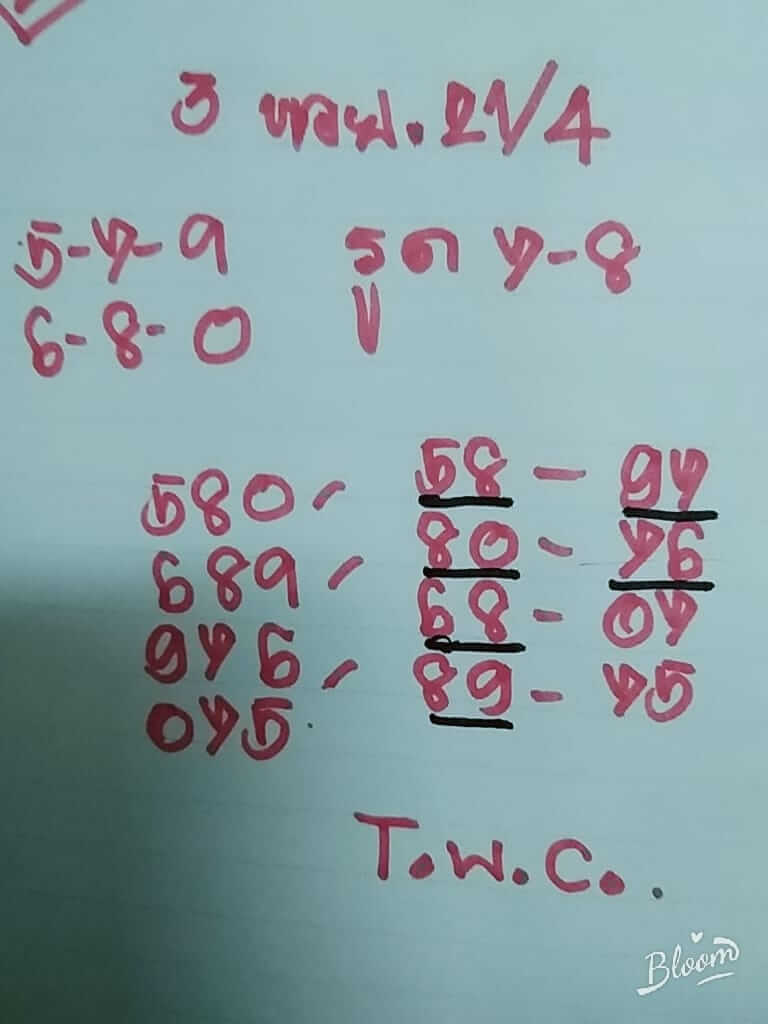 3 พอย. 21/4
5-7-9 รูด 7-8
6-8-0
580- 58 - 97
689- 80 - 76
976- 68 - 07
075 89 - 75
T.W.C..
Bloom